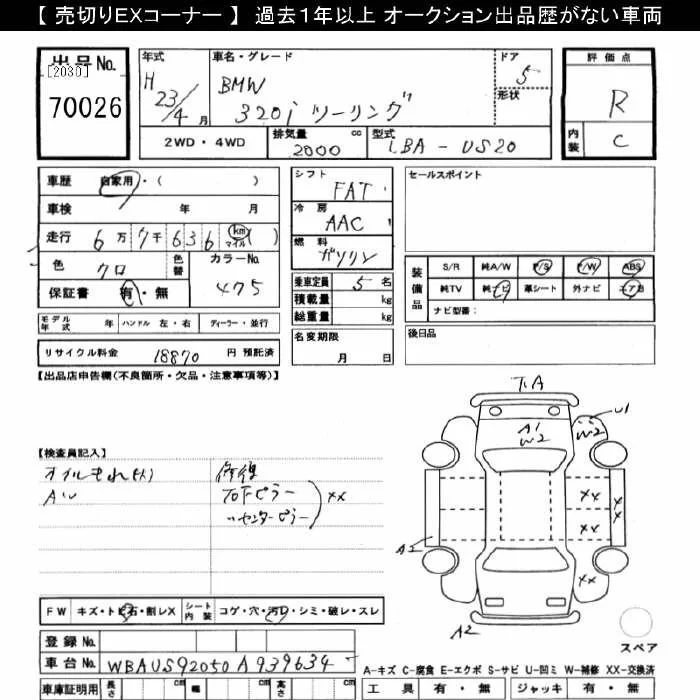 【 売切りEXコーナー 】 過去1年以上 オークション出品歴がない車両
出品No. [2030] 70026
年式 H 23/4 月
車名・グレード BMW 320i ツーリング
ドア 5
形状
評価点 R
内装 C
2WD・4WD 排気量 2000 cc 型式 LBA - US20
車歴 自家用・( )
車検 年 月
走行 6万 7千 6 3 6 km マイル ( )
色 クロ 色替 カラーNo. 475
保証書 有・無
モデル年式 年 ハンドル 左・右 ディーラー・並行
リサイクル料金 18870 円 預託済
シフト FAT
冷房 AAC
燃料 ガソリン
乗車定員 5 名
積載量 kg
総重量 kg
名変期限 月 日
セールスポイント
装備品 S/R 純A/W P/S P/W ABS
純TV 純ナビ 革シート 外ナビ エアB
ナビ型番：
後日品
【出品店申告欄(不良箇所・欠品・注意事項等)】
T.A
U1
A1
W2
W2
××
××
××
××
A2
A2
【検査員記入】
オイルもれ(大) 修復
AW 右Fピラー
〃センターピラー ××
FW キズ・トビ石・割レX シート内装 コゲ・穴・汚レ・シミ・破レ・スレ
登録 No.
車台 No. WBAUS92050A939634
車庫証明用 長さ cm 幅 cm 高さ cm
スペア
A-キズ C-腐食 E-エクボ S-サビ U-凹ミ W-補修 XX-交換済
工具 有・無 ジャッキ 有・無